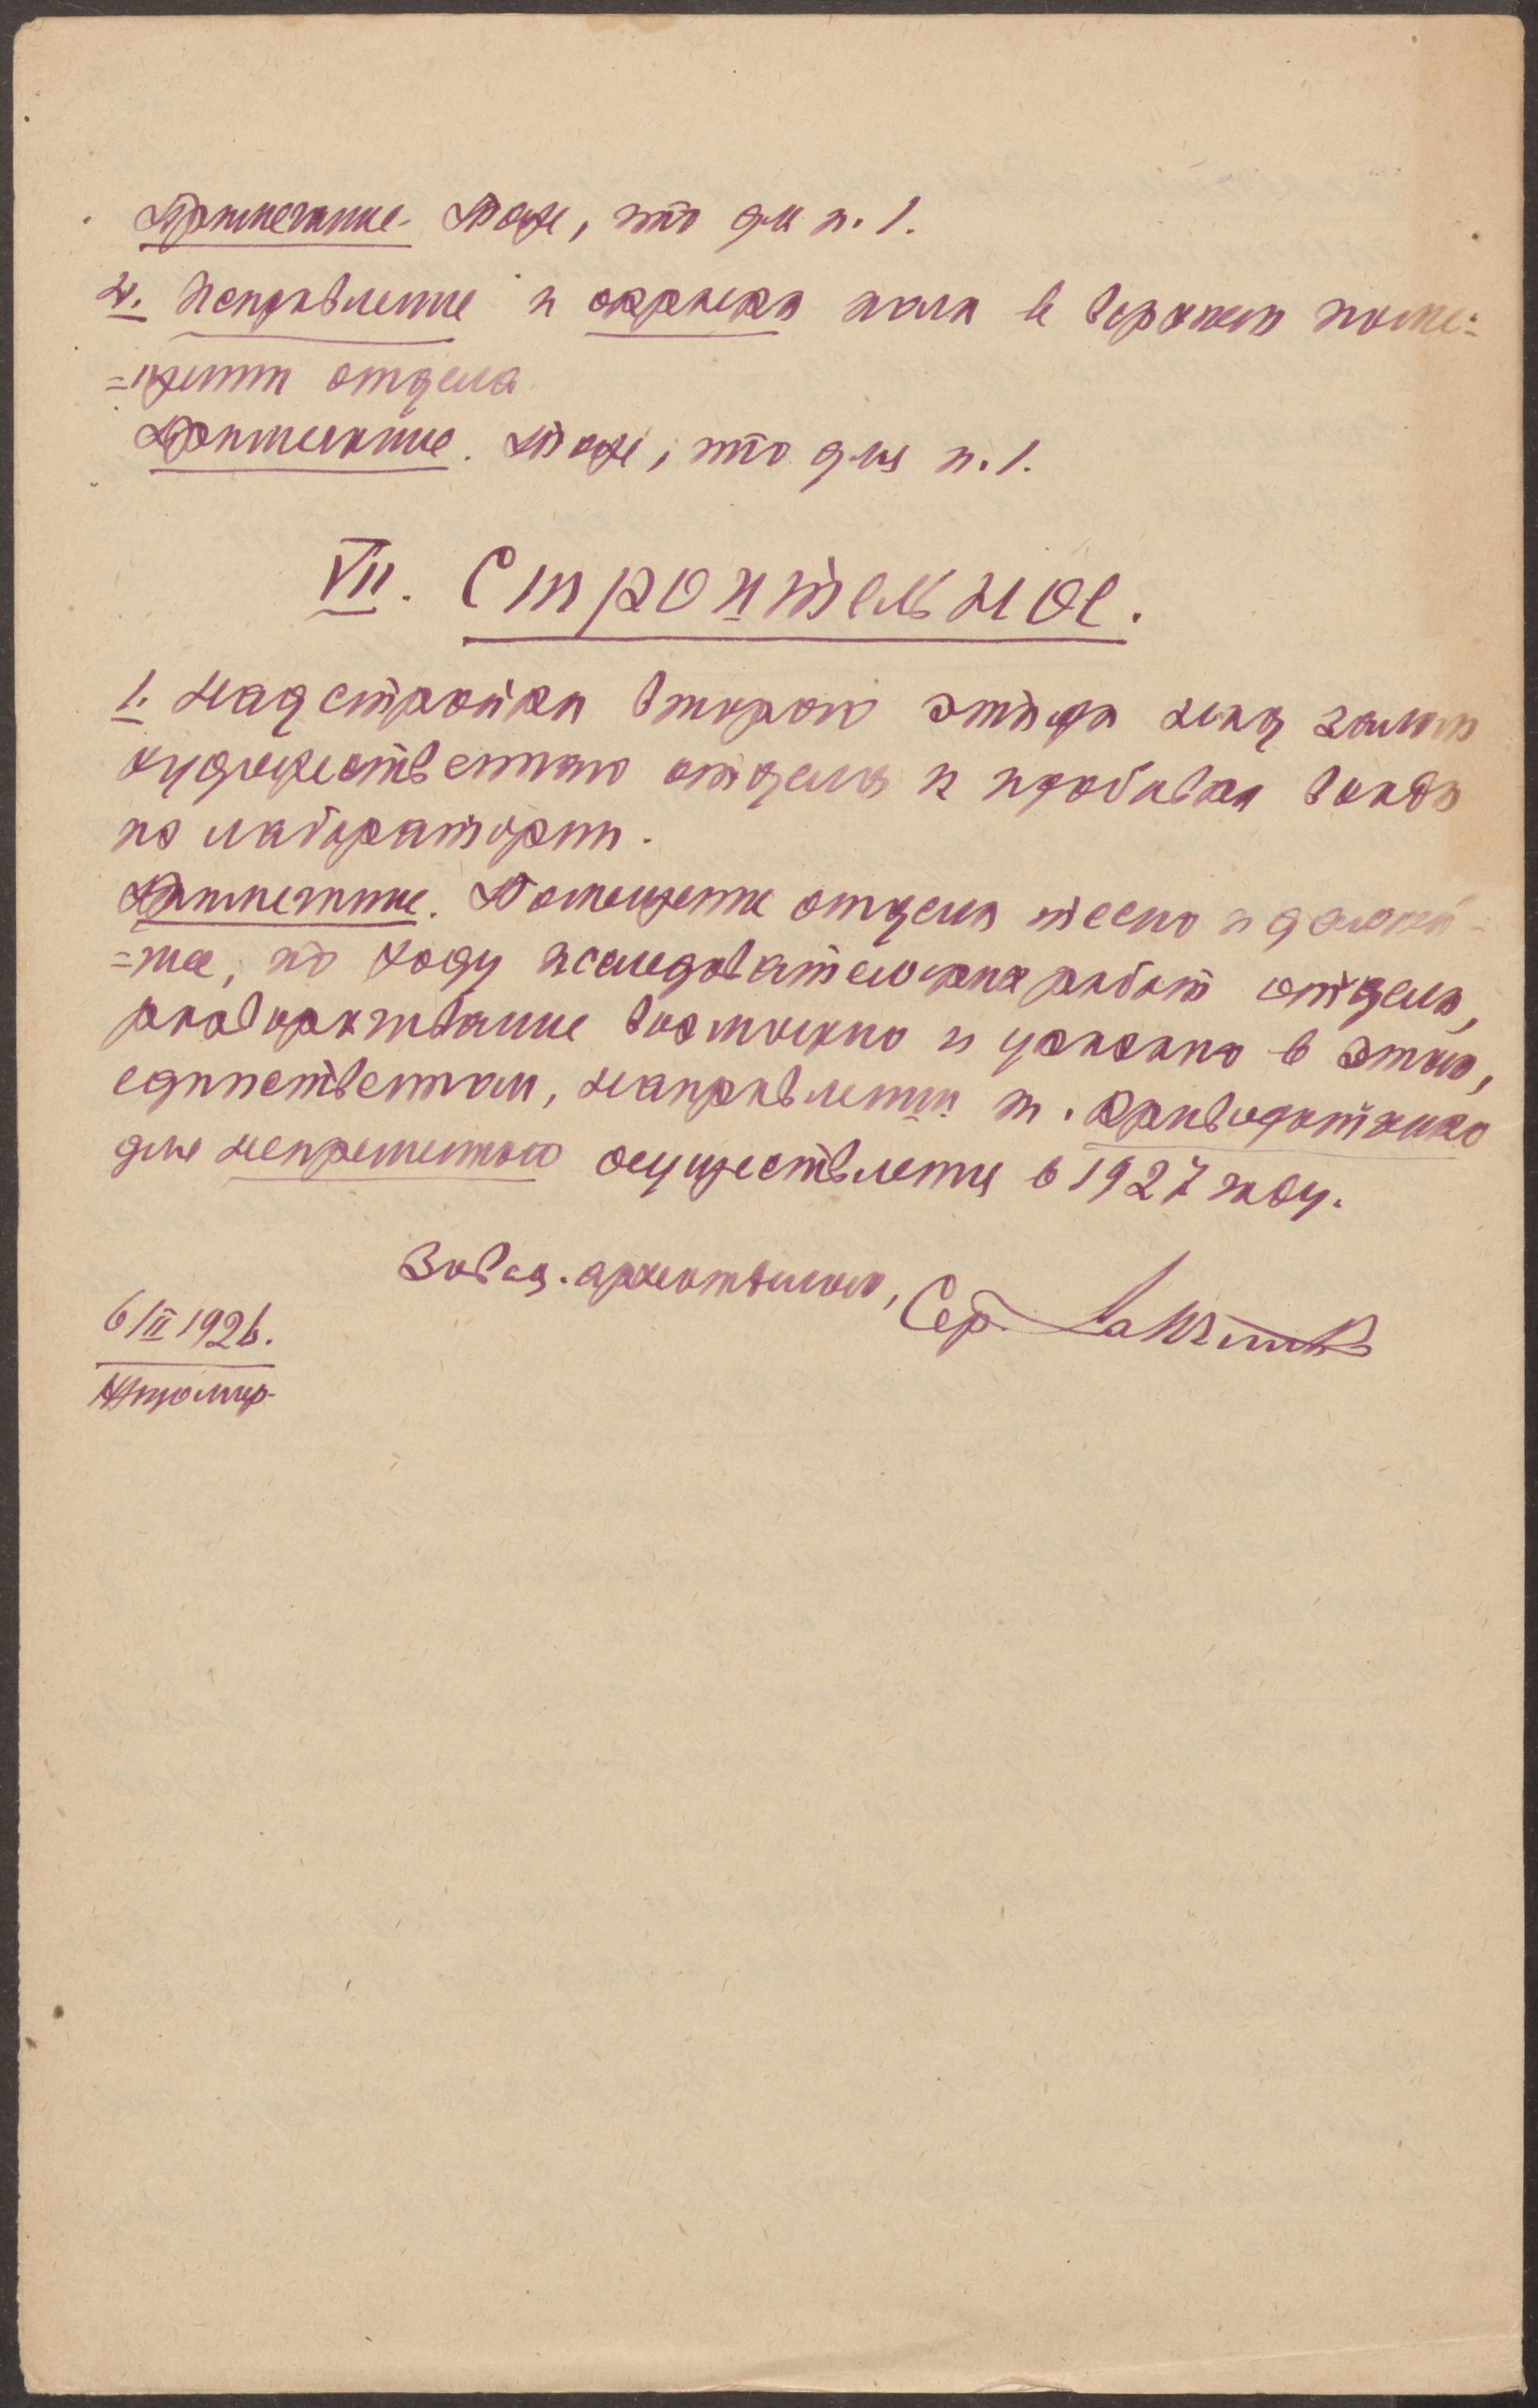 Примечание. Тоже, что для п. 1.
2. Исправление и окраска пола в верхнем поме=
=щении отдела
Примечание. Тоже, что для п. 1.
VII. Строительное.
1. Надстройка второго этажа над залом
художественного отдела и пробивка входа
из лаборатории.
Примечание. Помещение отдела тесно и
по ходу исследовательских работ отдела,
разворачивание возможно и указано в этом,
единственном, направлении и.
для непременного осуществления в 1927 году.
Завед. археотделом, Сер.
6/III 1926.
Житомир.